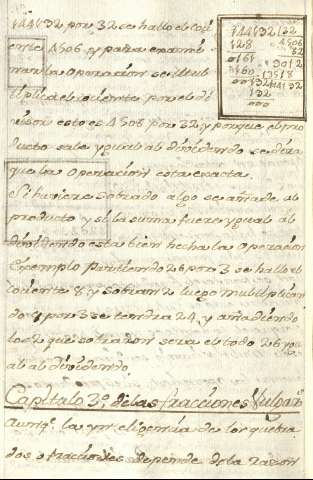 144132 por 32 se hallo el coci
ente 4506, y para exami
nar la operacion se multi
plica el cociente por el di
visor esto es 4506 por 32 y porque el pro
ducto sale ygual al dividendo se dira
que la operacion esta exacta.
Si huviere sobrado algo se añade al
producto y si la suma fuere ygual al
dividendo esta bien hecha la operacion
Exemplo Partiendo 26 por 3 se halla el
cociente 8 y sobran 2 luego multiplican
do 8 por 3 se tendra 24, y añadiendo
los 2 que sobraron sera el todo 26 yg
al al dividendo.
Capitulo 3º de las fracciones Vulgar
Aunq.e la ynteligencia de los quebra
dos o fracciones depende de la razon